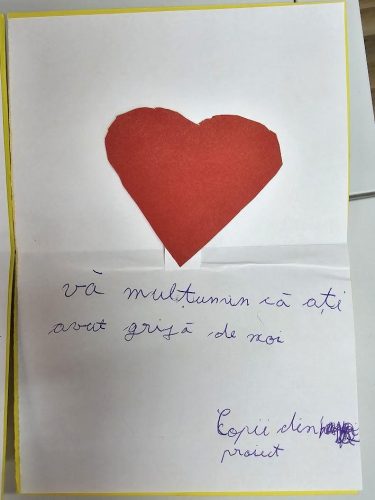 vă mulțumin că ați
avut grijă de noi
Copii din
proiect